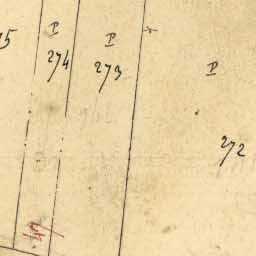 P
274
P
273
P
272